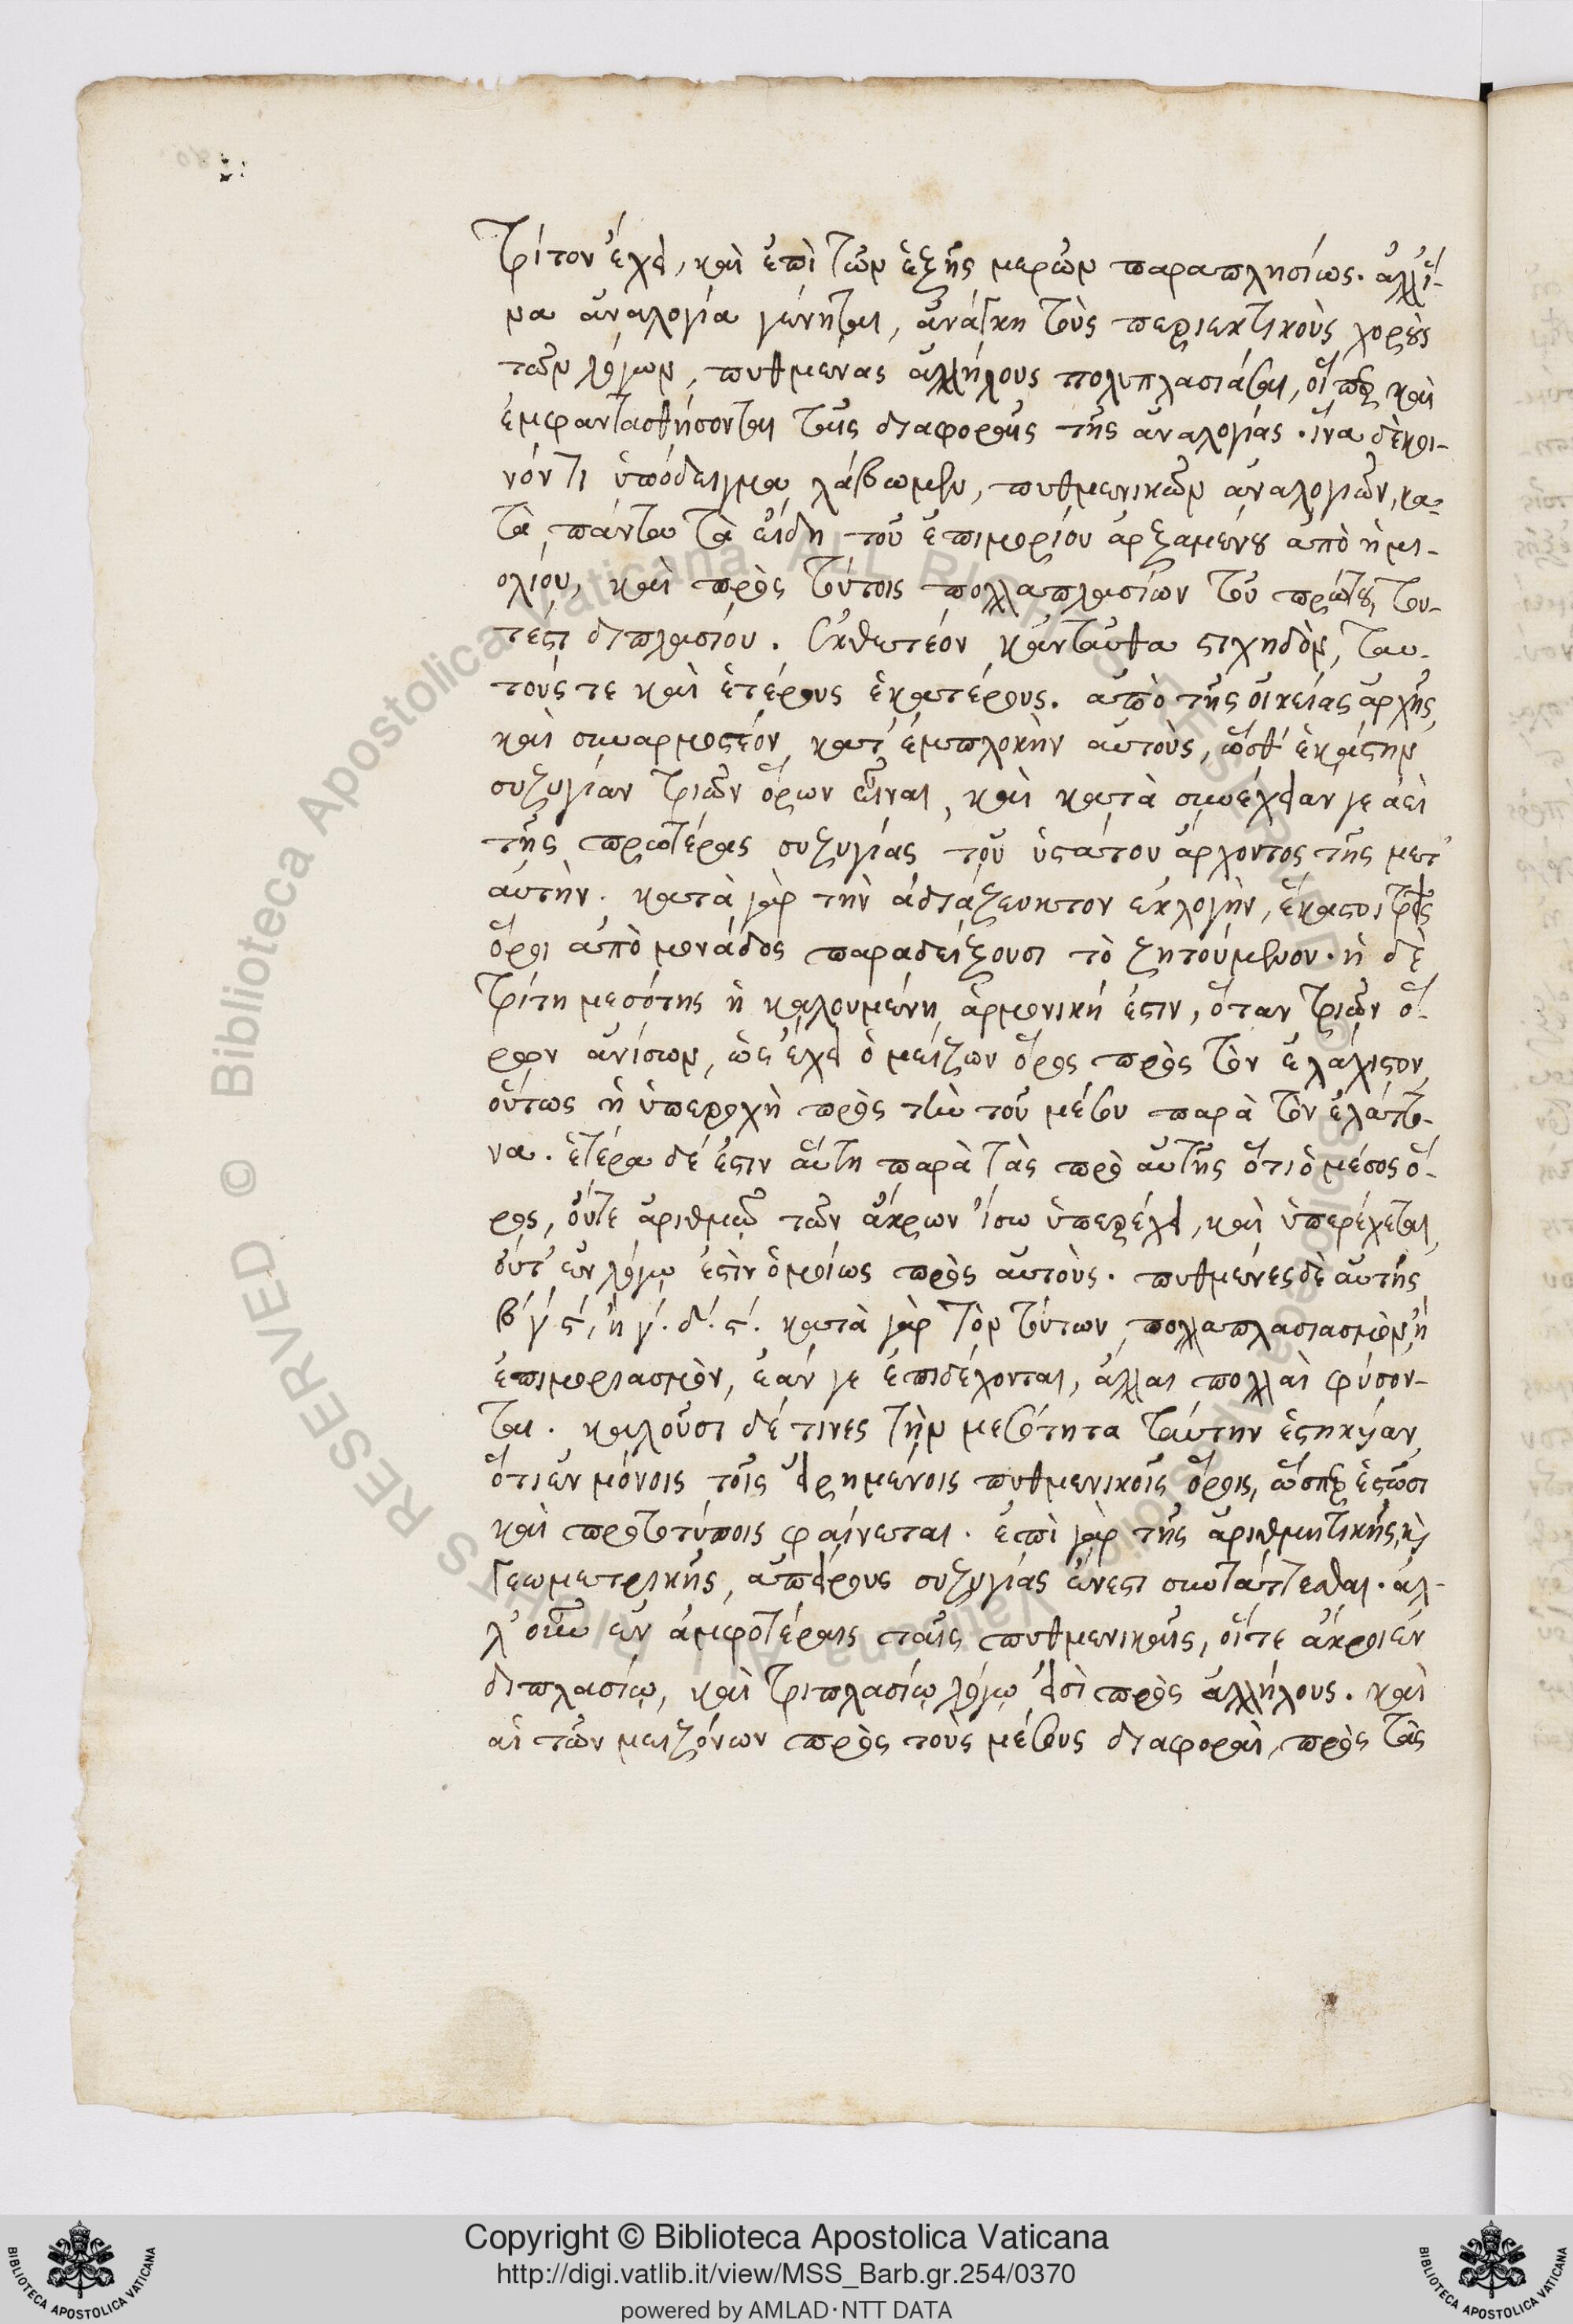 τρίτον ἔχει, καὶ ἐπὶ τῶν ἑξῆς μερῶν παραπλησίως. ἀλλ' ἵ-
να ἀναλογία γένηται, ἀνάγκη τοὺς περιεκτικοὺς χοροὺς
τῶν λόγων, πυθμενας ἀλλήλους πολυπλασιάσαι, οἵπερ καὶ
ἐμφαντασθήσονται ταῖς διαφοραῖς τῆς ἀναλογίας. ἵνα δὲ κοι-
νόν τι ὑπόδειγμα λάβωμεν, πυθμενικῶν ἀναλογιῶν, κα-
τὰ πάντα τὰ εἴδη τοῦ ἐπιμορίου ἀρξαμένου ἀπὸ ἡμι-
ολίου, καὶ πρὸς τούτοις πολλαπλασίων τοῦ πρώτου, του-
τέστι διπλασίου. ἐκθετέον κἀνταῦθα στιχηδὸν, ταυ-
τούς τε καὶ ἑτέρους ἑκατέρους. ἀπὸ τῆς οἰκείας ἀρχῆς
καὶ συναρμοστέον κατ' ἐμπλοκὴν αὐτοὺς, ὥσθ' ἑκάστην
συζυγίαν τριῶν ὅρων εἶναι, καὶ κατὰ συνέχειαν γε ἀεὶ
τῆς προτέρας συζυγίας τοῦ ὑστάτου ἄρχοντος τῆς μετ'
αὐτὴν. κατὰ γὰρ τὴν ἀδιάζευκτον ἐκλογὴν, ἕκαστοι τρεῖς
ὅροι ἀπὸ μονάδος παραδείξουσι τὸ ζητούμενον. ἡ δὲ
τρίτη μεσότης ἡ καλουμένη ἁρμονική ἐστιν, ὅταν τριῶν ὅ-
ρων ἀνίσων, ὡς ἔχει ὁ μείζων ὅρος πρὸς τὸν ἐλάχιστον
οὕτως ἡ ὑπεροχὴ πρὸς τὴν τοῦ μέσου παρὰ τὸν ἐλάττο-
να. ἑτέρα δέ ἐστιν αὕτη παρὰ τὰς πρὸ αὐτῆς ὅτι ὁ μέσος ὅ-
ρος, οὔτε ἀριθμῷ τῶν ἄκρων ἴσῳ ὑπερέχει, καὶ ὑπερέχεται,
οὔτ' ἐν λόγῳ ἐστὶν ὁμοίως πρὸς αὐτοὺς. πυθμένες δὲ αὐτῆς
β΄ γ΄ ς΄, ἢ γ΄. δ΄. ς΄. κατὰ γὰρ τὸν τούτων πολλαπλασιασμὸν, ἢ
ἐπιμοριασμὸν, ἐάν γε ἐπιδέχονται, ἄλλαι πολλαὶ φύσον-
ται. καλοῦσι δέ τινες τὴν μεσότητα ταύτην ἑστηκυῖαν
ὅτι ἐν μόνοις τοῖς εἰρημένοις πυθμενικοῖς ὅροις, ὥσπερ ἑστῶσι
καὶ πρωτοτύποις φαίνεται. ἐπὶ γὰρ τῆς ἀριθμητικῆς, καὶ
γεωμετρικῆς, ἀπείρους συζυγίας ἔνεστι συντάττεσθαι. ἀλ-
λ' οὖν ἐν ἀμφοτέραις ταῖς πυθμενικαῖς, οἵτε ἄκροι ἐν
διπλασίῳ, καὶ τριπλασίῳ λόγῳ εἰσὶ πρὸς ἀλλήλους. καὶ
αἱ τῶν μειζόνων πρὸς τοὺς μέσους διαφοραὶ, πρὸς τὰς
© Biblioteca Apostolica Vaticana ALL RIGHTS RESERVED
Copyright © Biblioteca Apostolica Vaticana
http://digi.vatlib.it/view/MSS_Barb.gr.254/0370
powered by AMLAD·NTT DATA
BIBLIOTECA APOSTOLICA VATICANA
BIBLIOTECA APOSTOLICA VATICANA